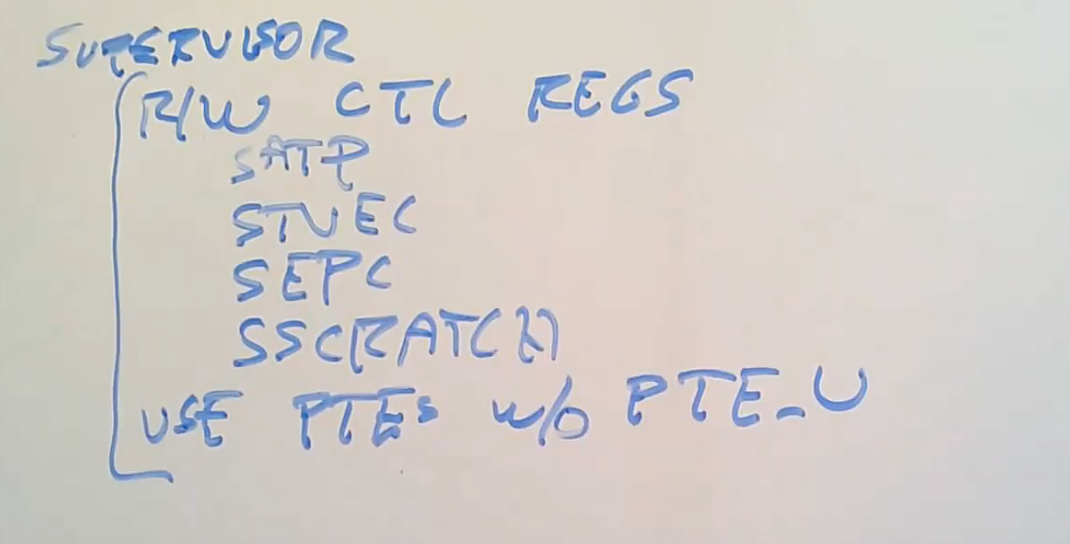 SUPERVISOR
R/W CTL REGS
SATP
STVEC
SEPC
SSCRATCH
USE PTEs w/o PTE_U